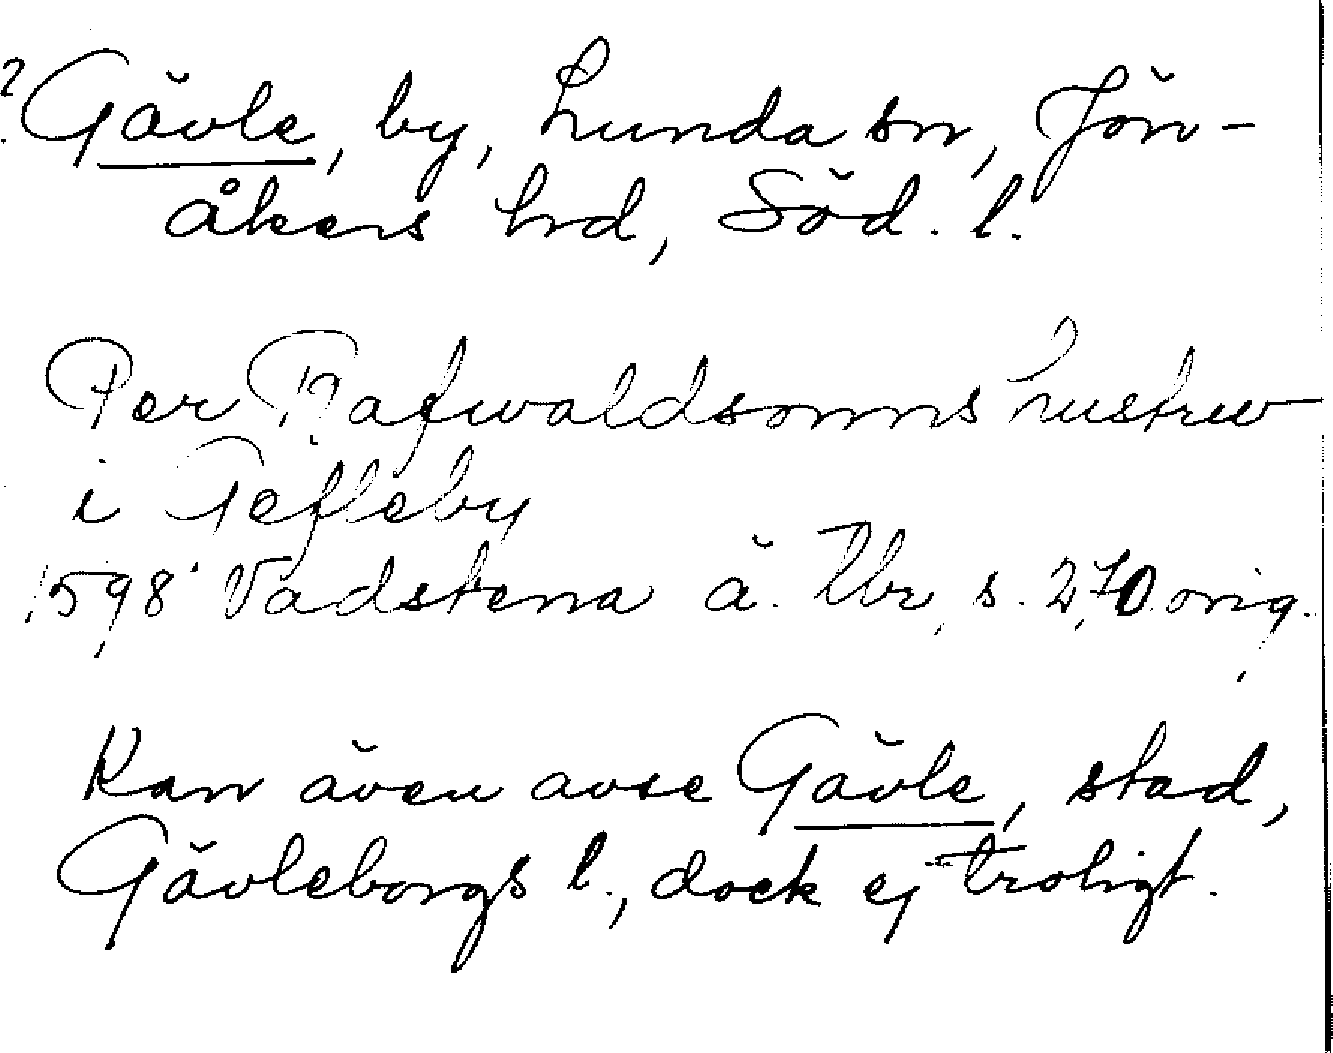 ? Gävle, by, Lunda sn, Jön-
åkers hd, Söd. l.
Per Rafwaldsonns hustrw
i Gefleby
1598 Vadstena ä. Tbr, s. 270 orig.
Kan även avse Gävle, stad,
Gävleborgs l., dock ej troligt.